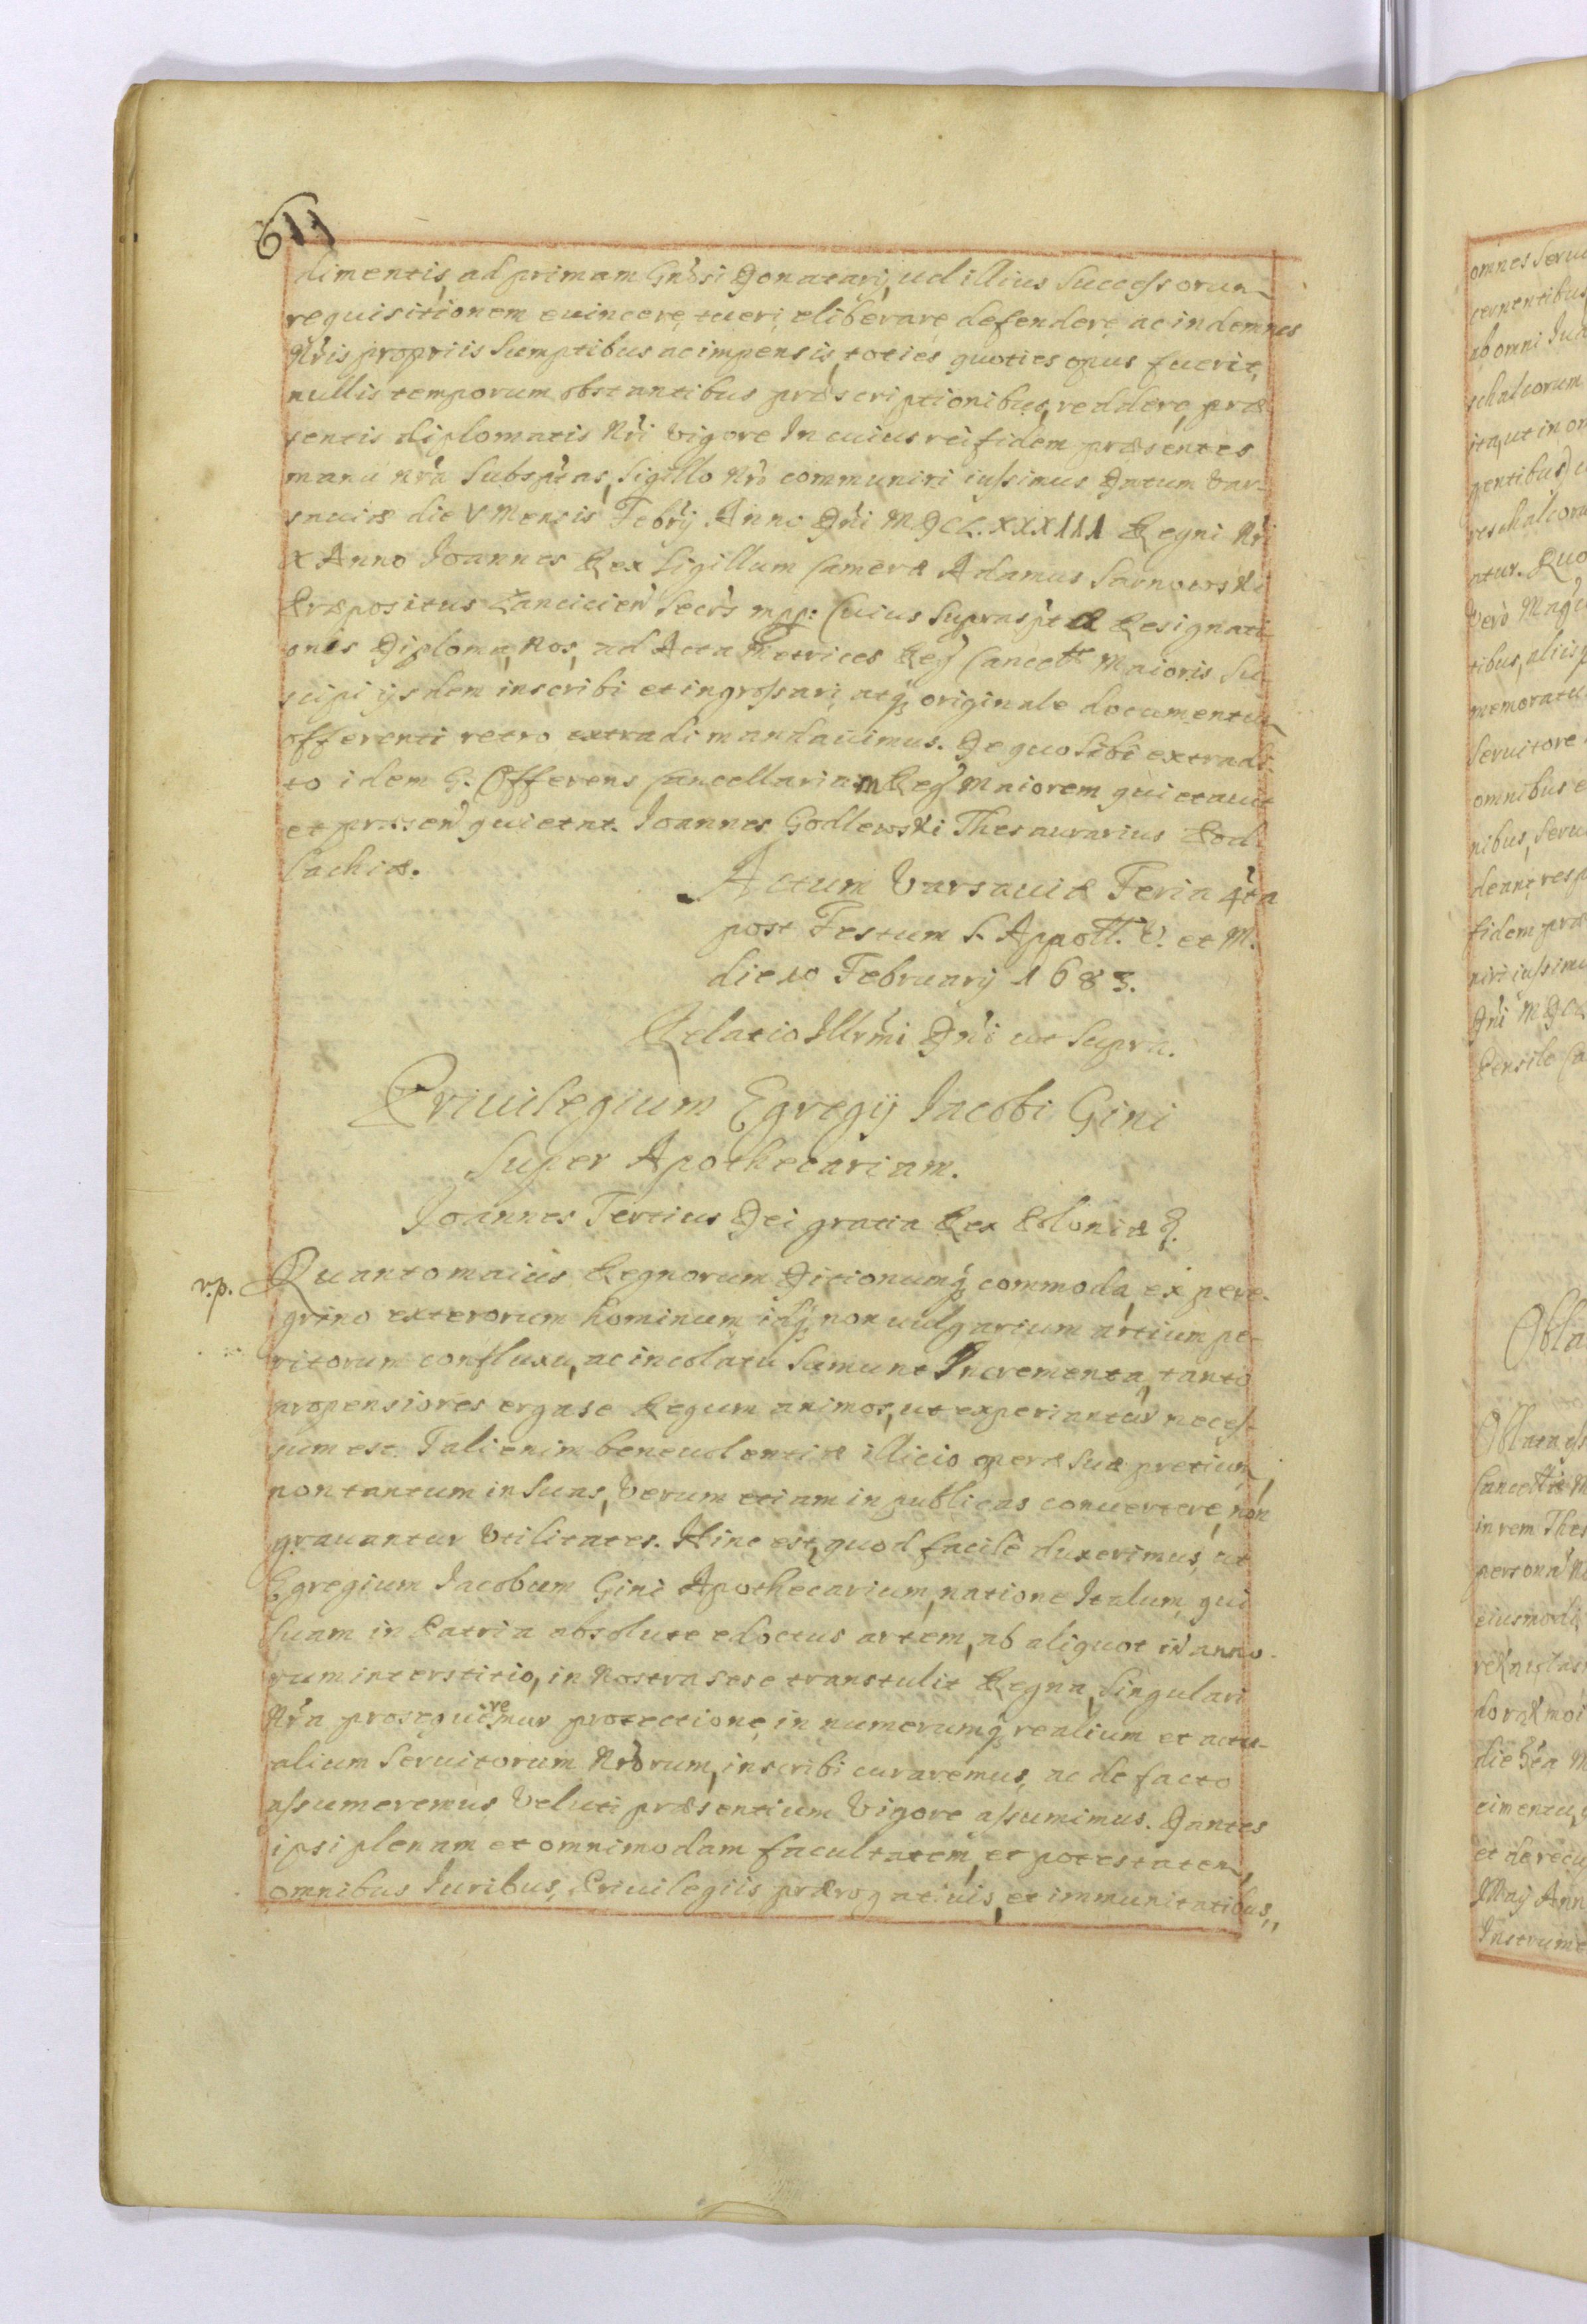 611
dimentis, ad primam Gn̄osi Donatarij, uel illius Successorum
requisitionem euincere, tueri, eliberare defendere ac indemnes
Nr̄is propriis Sumptibus ac impensis, toties quoties opus fuerit,
nullis temporum obstantibus præscriptionibus, reddere, præ
sentis diplomatis Nr̄i vigore In cuius rei fidem præsentes
manu nr̄a Subsp̄tas, Sigillo Nr̄o communiri iussimus Datum Var-
sauiæ die V Mensis Febr̄ij Anno Dn̄i MDCL.XXXIII Regni Nr̄i
X Anno Joannes Rex Sigillum Cameræ Adamus Sarnowski
Præpositus Lancicien̄ Secr̄s mpp: Cuius Suprasp̄tæ Resignati
onis Diploma, Nos, ad Acta Metrices Reg̃ Cancell̃ Maioris Su
scipi ijsdem inscribi et ingrossari, atq̃ originale documentum
offerenti retro extradi mandauimus. De quo Sibi extradi
to idem G. Offerens Cancellariam Reg̃ Maiorem quietauit
et præsen̄ quietat. Joannes Godlewski Thesaurarius Pod
lachiæ.
Actum Varsauiæ Feria 4ta
post Festum S. Appoll. V. et M.
die 10 February 1683.
Relatio Illr̄mi Dn̄i ut Supra.
Priuilegium Egregij Jacobi Gini
Super Apothecariam.
Joannes Tertius Dei gratia Rex Poloniæ &.
r.p. Quanto maius Regnorum Dicionumq̃ commoda, ex pere-
grino exterorum hominum idq̃ non uulgarium artium pe-
ritorum confluxu, ac incolatu Sumunt Incrementa, tanto
propensiores erga se Regum animos, ut experiantur neces-
sum est. Tali enim beneuolentiæ illicio operæ Suæ pretium,
non tantum in Suas, Verum etiam in publicas conuertere, non
grauantur Vtilitates. Hinc est, quod facilè duxerimus, ut
Egregium Jacobum Gini Apothecarium, natione Italum, qui
Suam in Patria absolute edoctus artem, ab aliquot in̄ anno-
rum interstitio, in Nostra sese transtulit Regna, Singulari
Nr̄a prosequeremur protectione, in numerumq̃ realium et actu-
alium Seruitorum Nr̄orum, inscribi curaremus, ac de facto
assumeremus Veluti præsentium Vigore assumimus. Dantes
ipsi plenam et omnimodam facultatem, et potestatem,
omnibus Iuribus, Priuilegiis prærogatiuis, et immunitatibus,